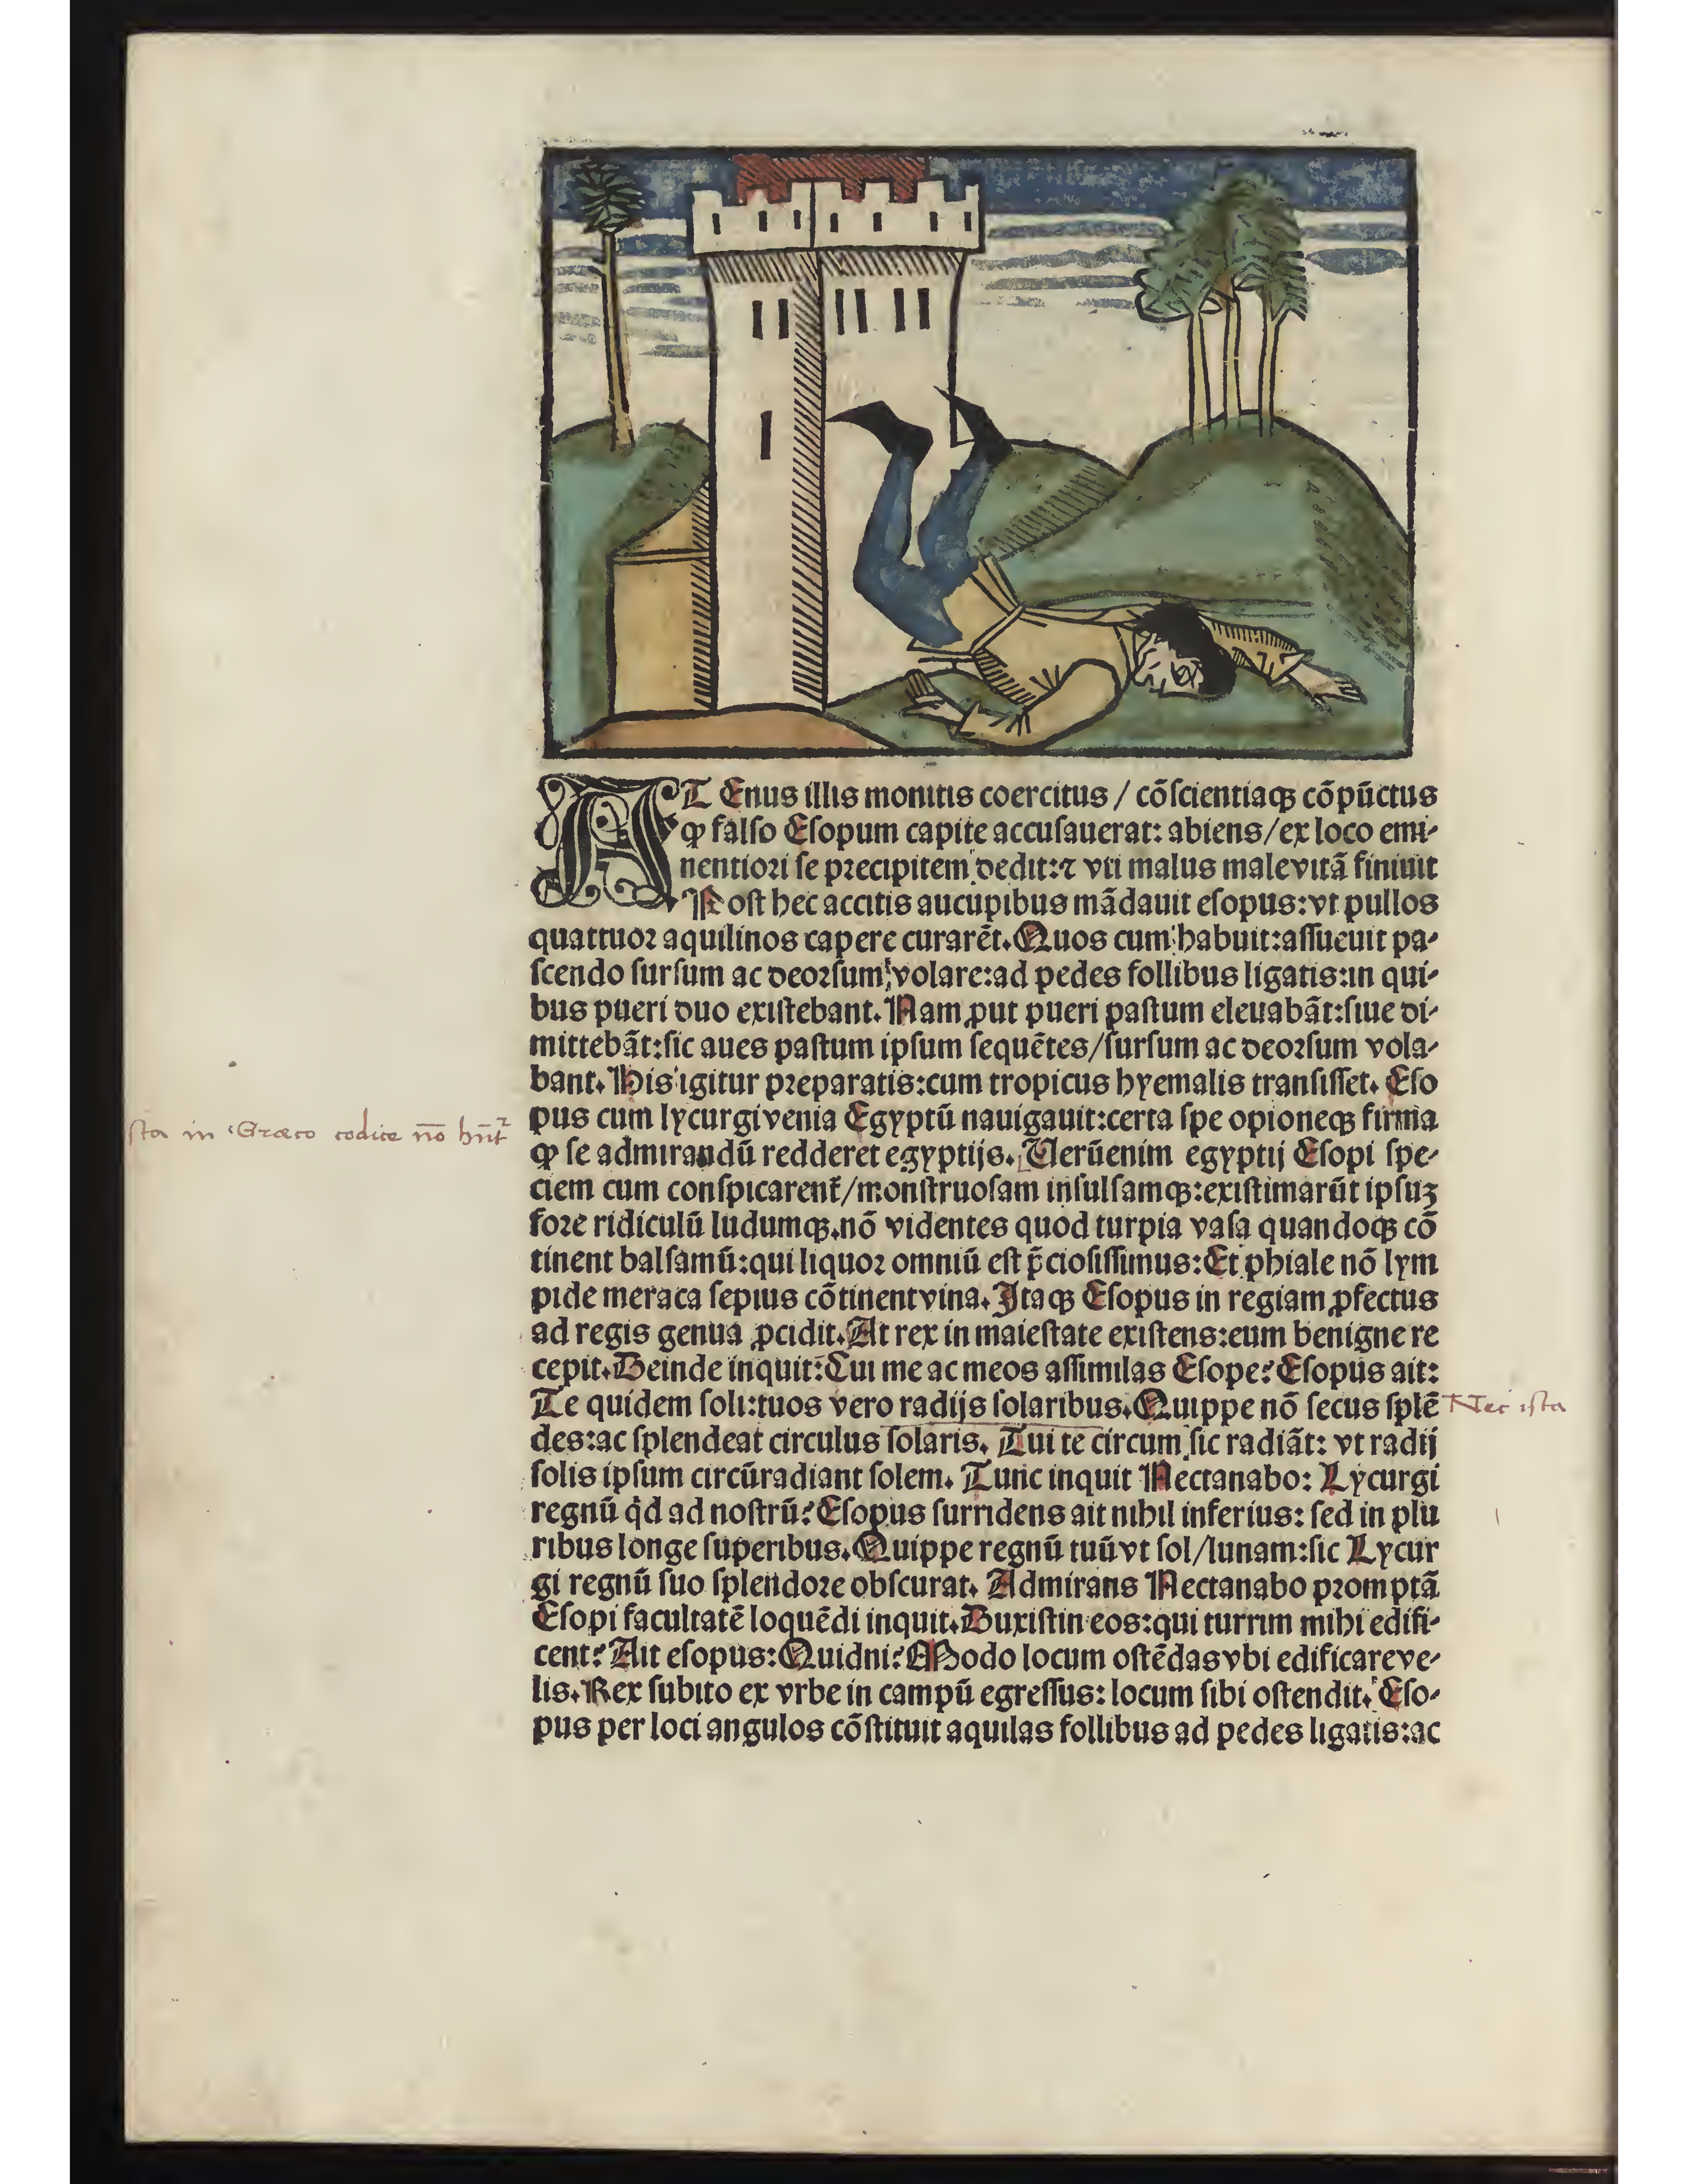 AT Enus illis monitis coercitus / cōſcientiaqꝫ cōpūctus
ꝙ falſo Eſopum capite accuſauerat: abiens/ex loco emi⸗
nentiori ſe precipitem dedit:⁊ vti malus male vitā finiuit
Poſt hec accitis aucupibus mādauit eſopus:vt pullos
quattuor aquilinos capere curarēt. Quos cum habuit:aſſueuit pa⸗
ſcendo ſurſum ac deorſum volare:ad pedes follibus ligatis:in qui⸗
bus pueri duo exiſtebant. Nam ꝓut pueri paſtum eleuabāt:ſiue di⸗
mittebāt:ſic aues paſtum ipſum ſequētes/ſurſum ac deorſum vola⸗
bant. His igitur preparatis:cum tropicus hyemalis tranſiſſet. Eſo
pus cum lycurgi venia Egyptū nauigauit:certa ſpe opioneqꝫ firma
ꝙ ſe admirandū redderet egyptijs. Uerūenim egyptij Eſopi ſpe⸗
ciem cum conſpicarent᷑/monſtruoſam inſulſamqꝫ:exiſtimarūt ipſuꝫ
fore ridiculū ludumqꝫ.nō videntes quod turpia vaſa quandoqꝫ cō
tinent balſamū:qui liquor omniū eſt p̄cioſiſſimus:Et phiale nō lym
pide meraca ſepius cōtinent vina. Itaqꝫ Eſopus in regiam ꝓfectus
ad regis genua ꝓcidit. At rex in maieſtate exiſtens:eum benigne re
cepit. Deinde inquit: Cui me ac meos aſſimilas Eſope? Eſopus ait:
Te quidem ſoli:tuos vero radijs ſolaribus. Quippe nō ſecus ſplē
des:ac ſplendeat circulus ſolaris. Tui te circum ſic radiāt: vt radij
ſolis ipſum circūradiant ſolem. Tunc inquit Nectanabo: Lycurgi
regnū qd̓ ad noſtrū? Eſopus ſurridens ait nihil inferius: ſed in plu
ribus longe ſuperibus. Quippe regnū tuū vt ſol/lunam:ſic Lycur
gi regnū ſuo ſplendore obſcurat. Admirans Nectanabo promptā
Eſopi facultatē loquēdi inquit. Duxiſtin eos:qui turrim mihi edifi⸗
cent? Ait eſopus: Quidni? Modo locum oſtēdas vbi edificare ve⸗
lis. Rex ſubito ex vrbe in campū egreſſus: locum ſibi oſtendit. Eſo⸗
pus per loci angulos cōſtituit aquilas follibus ad pedes ligatis:ac
ſta in Græco codice nō hn̄t
Nec iſta